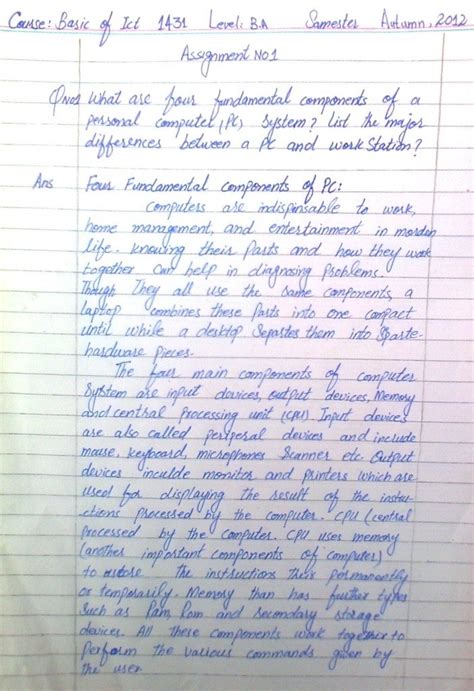 Course: Basic of Ict 1431 Level: B.A Samester Autumn, 2012
Assignment No1
QNo1 What are four fundamental components of a
personal computer (PC) system? List the major
differences between a PC and work Station?
Ans Four Fundamental components of PC:
Computers are indispinsable to work,
home management, and entertainment in mordon
life. knowing their Parts and how they work
together Can help in diagnosing Problems.
Though They all use the Same components, a
laptop combines these Parts into one compact
until while a desktop Separtes them into Sparte-
hardware pieces.
The four main components of computer
System are input devices, output devices, Memory
and central processing unit (CPU) Input devices
are also called periperal devices and include
mouse, keyboard, microphones Scanner etc Output
devices inculde monitor and printers which are
used for displaying the result of the instru-
ctions processed by the computer. CPU (central
Processed by the Computer. CPU uses memory
(another important Components of computer)
to restore the instructions their permanently
or temporarily. Memory than has further types
Such as Ram Rom and Secondary storage
devices. All these Components work together to
Perform the various commands given by
the user.